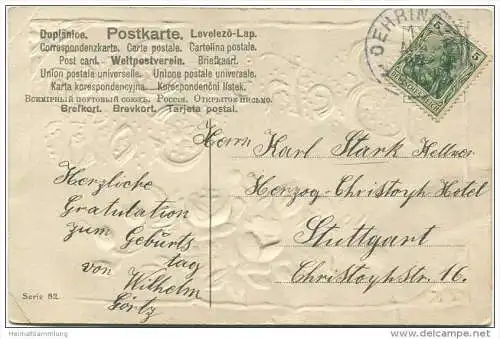 Duplanloe. Postkarte. Levelező-Lap.
Correspondenzkarte. Carte postale. Cartolina postale.
Post card. Weltpostverein. Briefkaart.
Union postale universelle. Unione postale universale.
Karta korespondencyjna. Korespondenční lístek.
Всемірный почтовый союзъ. Россія. Открытое письмо.
Brefkort. Brevkort. Tarjeta postal.
OEHRIN
5 5
DEUTSCHES REICH
Herrn Karl Stark Kellner
Herzog-Christoph Hotel
Stuttgart
Christophstr. 16.
Herzliche
Gratulation
zum Geburts
tag
von Wilhelm
Görtz
Serie 82.
Heimatsammlung
www.delcampe.net